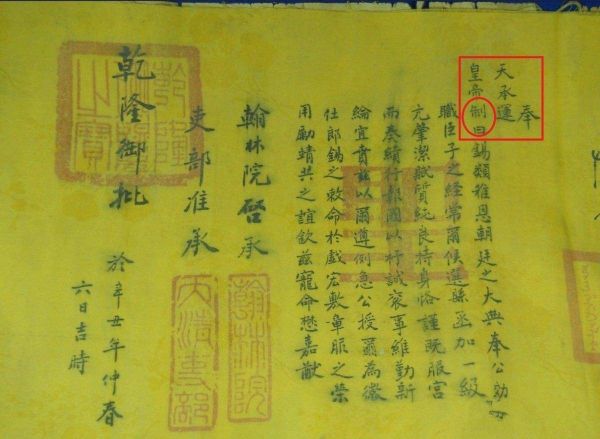 奉
天承運
皇帝制曰錫類雅恩朝廷之大典奉公効
職臣子之經常爾候選縣丞加一級
元肇潔賦質純良持身恪謹既服官
而奏績行報國以抒誠裘事維勤新
綸宜賁茲以爾遵例急公授爾為徵
仕郎錫之敕命於戲宏敷章服之榮
用勵靖共之誼欽茲寵命懋嘉猷
翰林院啓承
翰林院
吏部准承
大清吏部
乾隆御批
乾隆之寶
於辛丑年仲春
六日吉時